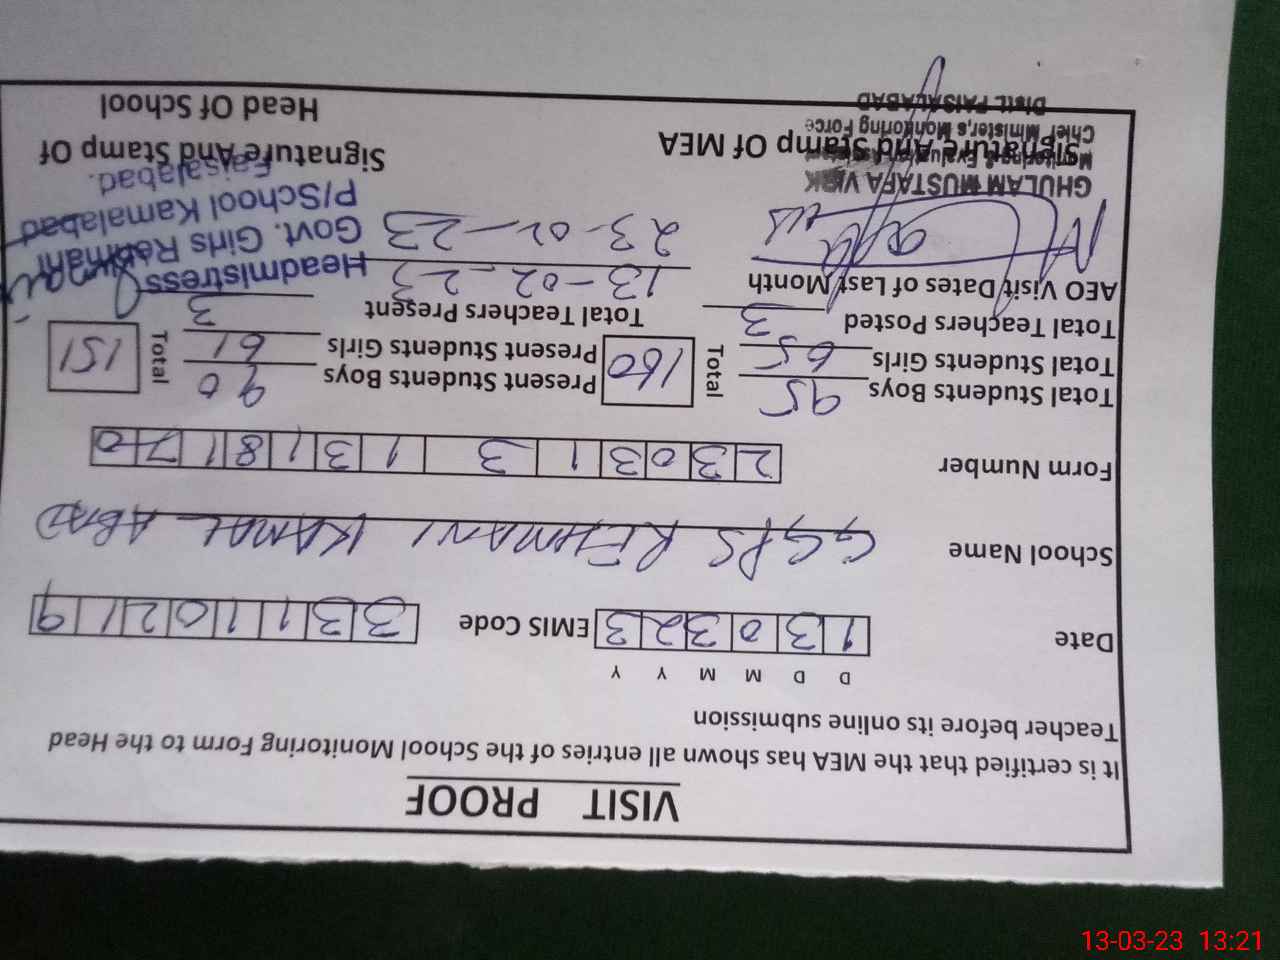 VISIT PROOF
It is certified that the MEA has shown all entries of the School Monitoring Form to the Head
Teacher before its online submission
D D M M Y Y
Date 1 3 0 3 2 3 EMIS Code 3 3 1 1 0 2 1 9
School Name GGPS REHMANI KAMAL ABAD
Form Number 2 3 0 3 1 3 1 3 1 8 1 7 0
Total Students Boys 95 Total 160 Present Students Boys 90 Total 151
Total Students Girls 65 Present Students Girls 61
Total Teachers Posted 3 Total Teachers Present 3
AEO Visit Dates of Last Month 13-02-23
23-02-23
Headmistress
Govt. Girls Rehmani
P/School Kamalabad
Faisalabad.
GHULAM MUSTAFA VIRK
Monitoring & Evaluation Assistant
Chief Minister,s Monitoring Force
Distt. FAISALABAD
Signature And Stamp Of MEA
Signature And Stamp Of
Head Of School
13-03-23 13:21